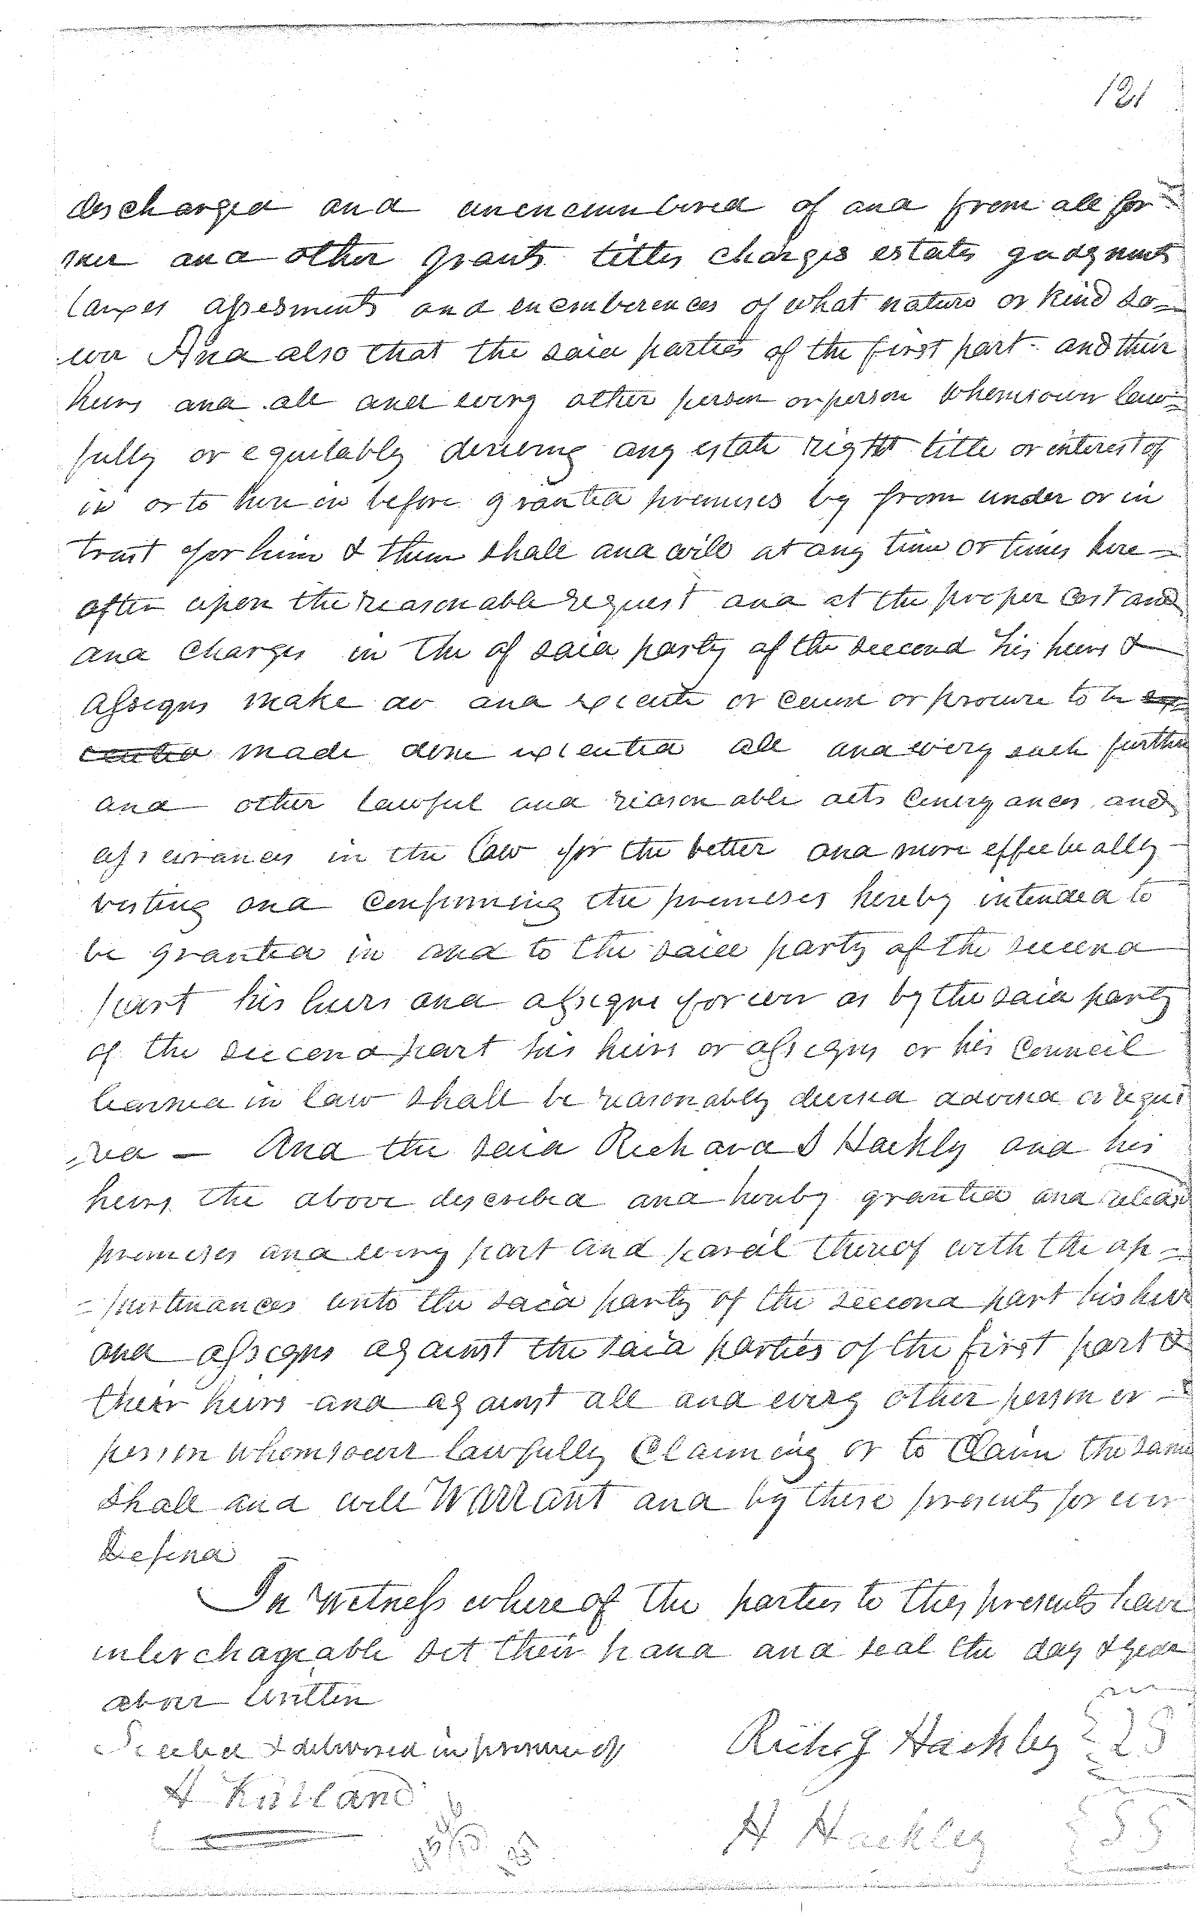 121
discharged and unencumbered of and from all for=
mer and other grants titles charges estates gudgments
taxes assesments and encumberences of what nature or kind so=
ever And also that the said parties of the first part and their
heirs and all and every other person or person whomsoever law=
fully or equitably deriving any estate right title or interest of
in or to here in before granted premises by from under or in
trust for him & them shall and will at any time or times here=
after upon the reasonable request and at the proper cost and
and charges in the of said party of the second his heirs &
assigns make do and execute or cause or procure to be exe
cuted made done executed all and every such further
and other lawful and reasonable acts conveyances and
assurances in the law for the better and more effectually
vesting and confirming the premises hereby intended to
be granted in and to the said party of the second
part his heirs and assigns forever as by the said party
of the second part his heirs or assigns or his Council
learned in law shall be reasonably devised advised or requi
=red — And the said Richard S Hackly and his
heirs the above described and hereby granted and releasd
premises and every part and parcel thereof with the ap=
=purtenances unto the said party of the second part his heirs
and assigns against the said parties of the first part &
their heirs and against all and every other person or
person whomsoever lawfully Claiming or to Claim the same
shall and will Warrant and by these presents forever
Defend
In Witness where of the parties to thes presents have
interchageable set their hand and seal the day & year
above written
Sealed & delivered in presence of
Richd S Hackley
H
H Hackley